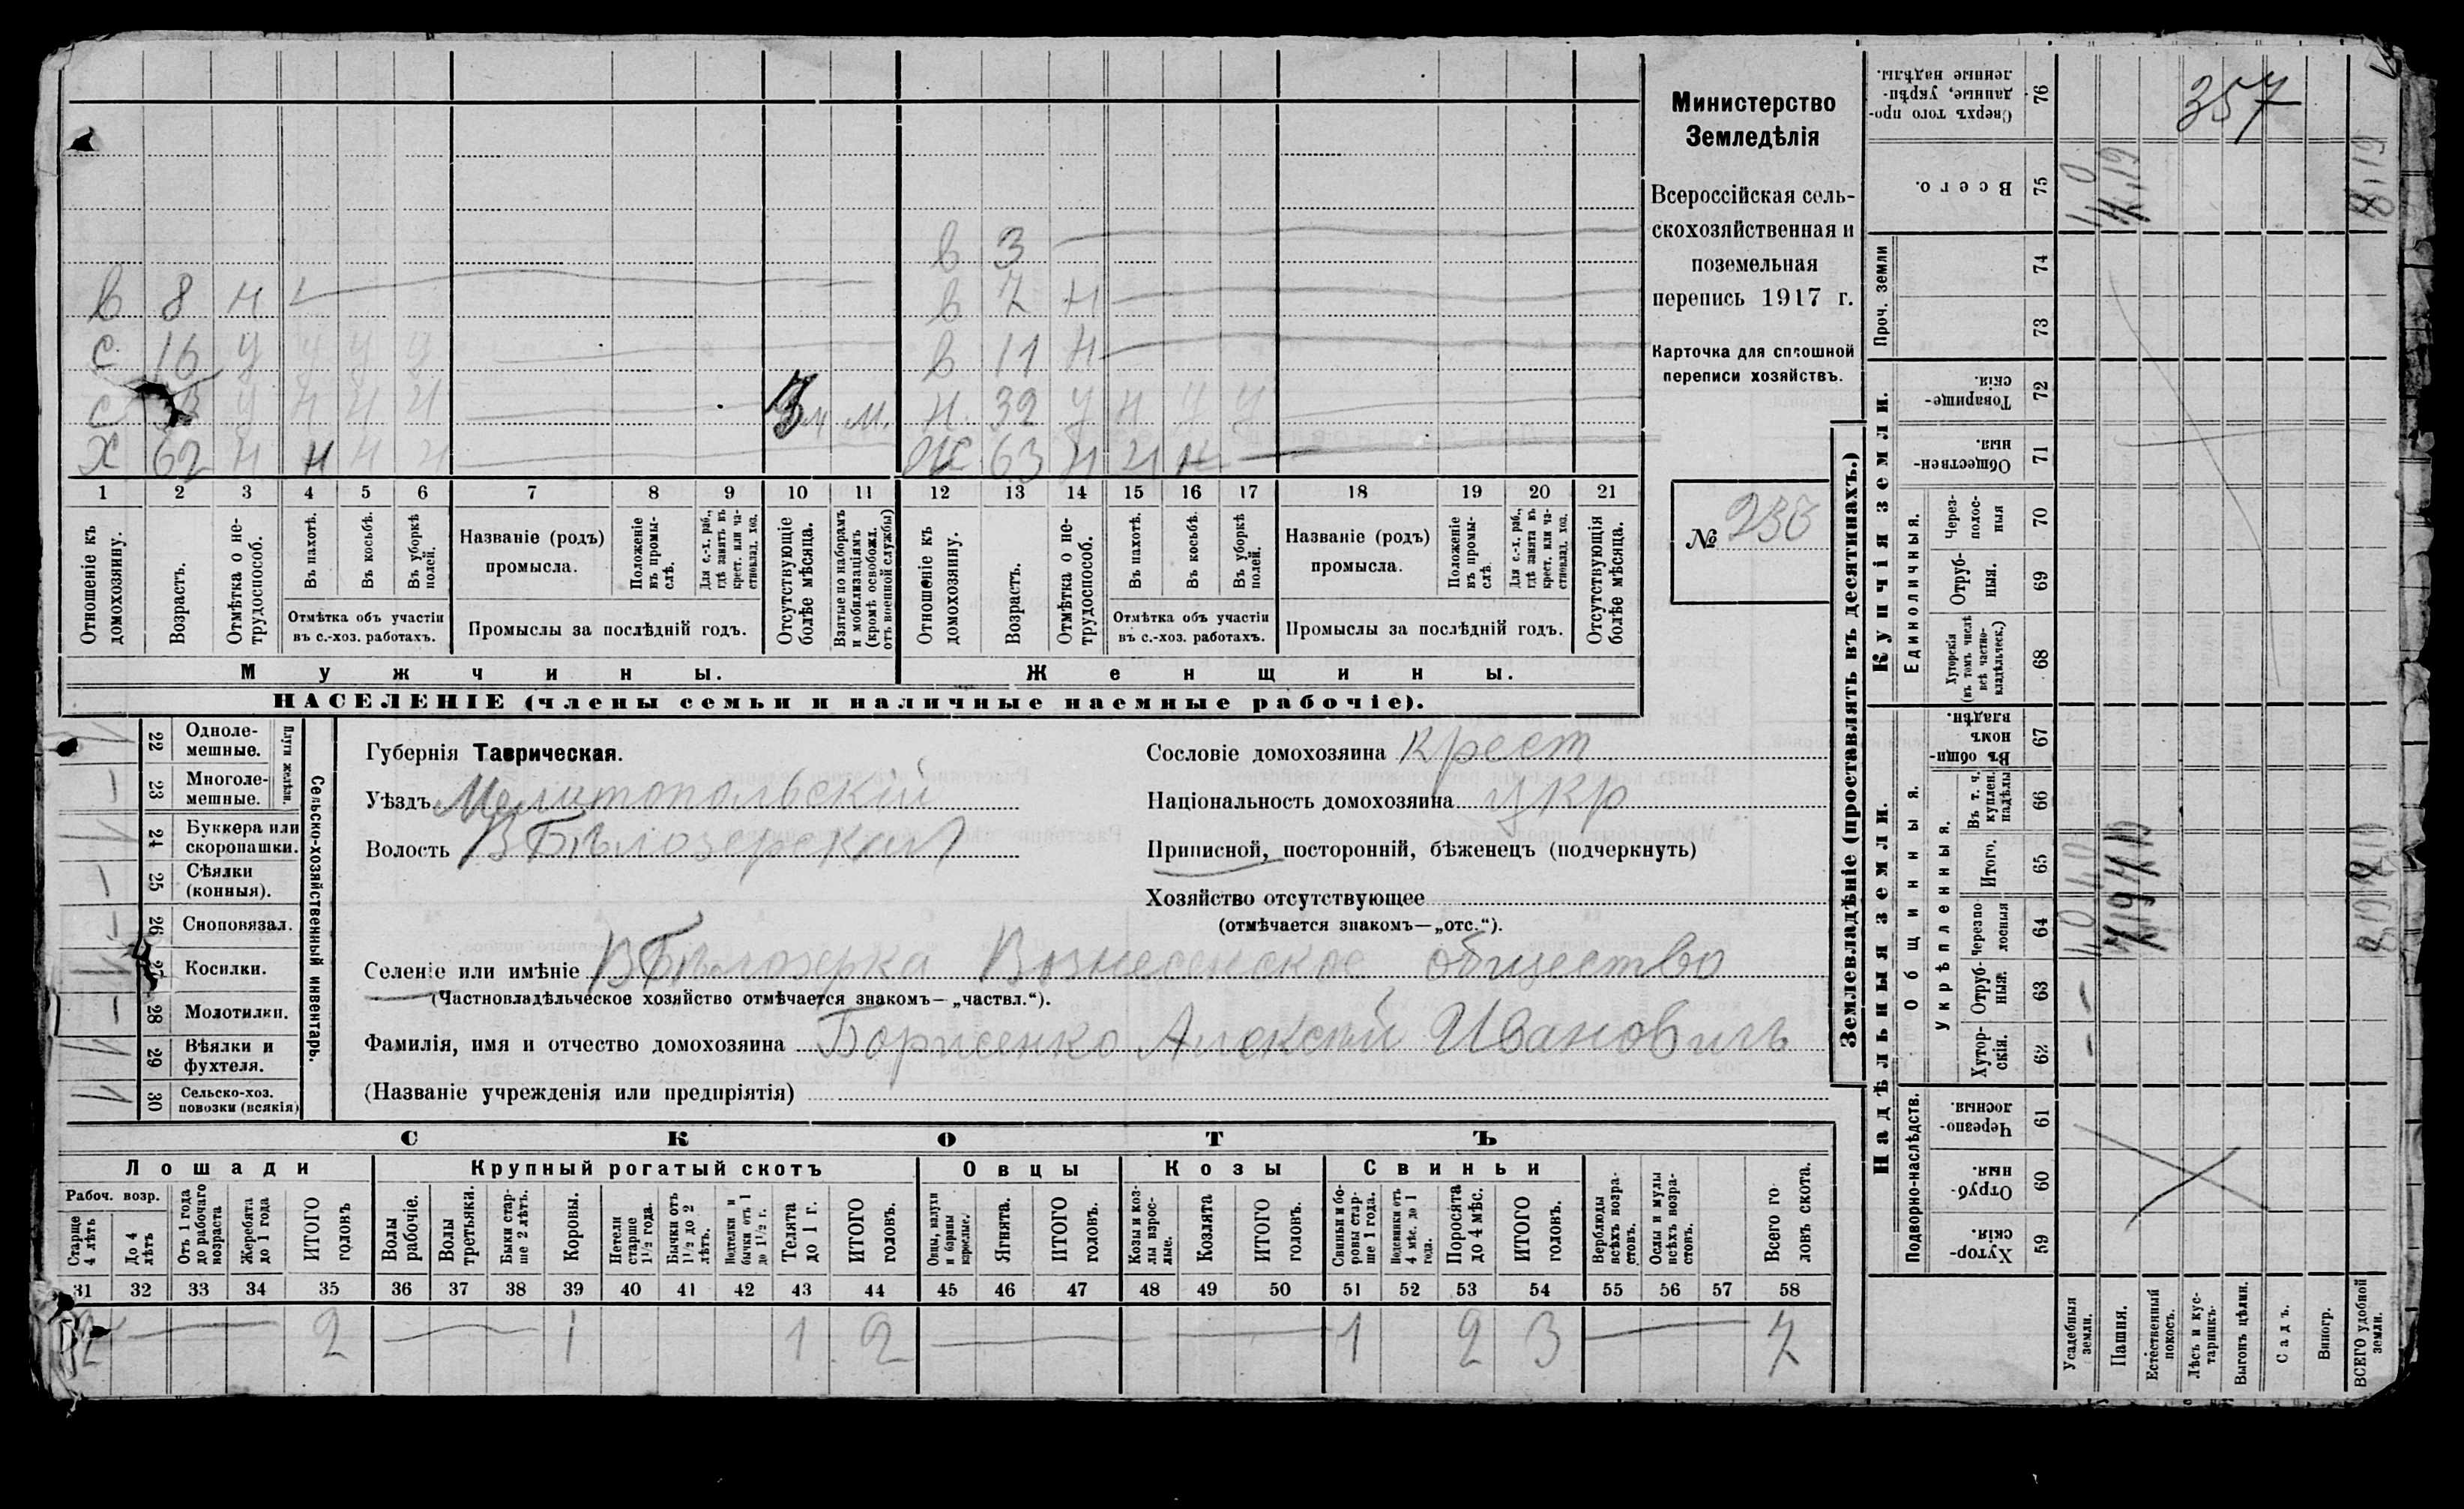 в 3
в 8 н в 7 н
с 16 у у у у в 11 н
с у н н н 3 м м. н. 32 у н у у
х 62 н н н н ж 63 н н н
1 2 3 4 5 6 7 8 9 10 11 12 13 14 15 16 17 18 19 20 21
Отношеніе къ домохозяину.
Возрастъ.
Отмѣтка о не-трудоспособ.
Въ пахотѣ.
Въ косьбѣ.
Въ уборкѣ полей.
Отмѣтка объ участіи
въ с.-хоз. работахъ.
Названіе (родъ)
промысла.
Положеніе въ промы-слѣ.
Для с.-х. раб., гдѣ занятъ въ крест. или ча-стновлад. хоз.
Промыслы за послѣдній годъ.
Отсутствующіе болѣе мѣсяца.
Взятые по наборамъ и мобилизаціямъ (кромѣ освобожд. отъ военной службы)
Отношеніе къ домохозяину.
Возрастъ.
Отмѣтка о не-трудоспособ.
Въ пахотѣ.
Въ косьбѣ.
Въ уборкѣ полей.
Отмѣтка объ участіи
въ с.-хоз. работахъ.
Названіе (родъ)
промысла.
Положеніе въ промы-слѣ.
Для с.-х. раб., гдѣ занята въ крест. или ча-стновлад. хоз.
Промыслы за послѣдній годъ.
Отсутствующія болѣе мѣсяца.
Мужчины. Женщины.
НАСЕЛЕНІЕ (члены семьи и наличные наемные рабочіе).
Министерство
Земледѣлія
Всероссійская сель-
скохозяйственная и
поземельная
перепись 1917 г.
Карточка для сплошной
переписи хозяйствъ.
№
22 Одноле-мешные.
23 Многоле-мешные.
Плуги желѣзн.
24 Буккера или скоропашки.
25 Сѣялки (конныя).
26 Сноповязал.
27 Косилки.
28 Молотилки.
29 Вѣялки и фухтеля.
30 Сельско-хоз. повозки (всякія)
Сельско-хозяйственный инвентарь.
Губернія Таврическая.
Уѣздъ Мелитопольскій
Волость В Бѣлозерская
Селеніе или имѣніе В Бѣлозерка Вознесенское общество
(Частновладѣльческое хозяйство отмѣчается знакомъ—„частвл.“).
Фамилія, имя и отчество домохозяина Борисенко Алексѣй Ивановичъ
(Названіе учрежденія или предпріятія)
Сословіе домохозяина крест
Національность домохозяина укр
Приписной, посторонній, бѣженецъ (подчеркнуть)
Хозяйство отсутствующее
(отмѣчается знакомъ—„отс.“).
СКОТЪ
Лошади Крупный рогатый скотъ Овцы Козы Свиньи
Рабоч. возр.
Старше 4 лѣтъ
До 4 лѣтъ
Отъ 1 года до рабочаго возраста
Жеребята до 1 года
ИТОГО головъ
Волы рабочіе.
Волы третьяки.
Быки стар-ше 2 лѣтъ.
Коровы.
Нетели старше 1½ года.
Бычки отъ 1½ до 2 лѣтъ.
бычки отъ 1 до 1½ г.
Телята до 1 г.
ИТОГО головъ.
Овцы, валухи и бараны взрослые.
Ягнята.
ИТОГО головъ.
Козы и коз-лы взрос-лые.
Козлята
ИТОГО головъ.
Свиньи и бо-ровы стар-ше 1 года.
Подсвинки отъ 4 мѣс. до 1 года.
Поросята до 4 мѣс.
ИТОГО головъ.
Верблюды всѣхъ возра-стовъ.
Ослы и мулы всѣхъ возра-стовъ.
Всего го ловъ скота.
31 32 33 34 35 36 37 38 39 40 41 42 43 44 45 46 47 48 49 50 51 52 53 54 55 56 57 58
2 2 1 1 2 1 2 3 7
Землевладѣніе (проставлять въ десятинахъ.)
Купчія земли.
Надѣльныя земли.
Сверхъ того про-данные, укрѣп-ленные надѣлы. 76
357
Всего. 75 8,19
Проч. земли 74 73
Товарище-скія. 72
Обществен-ныя. 71
Единоличныя.
Через-полос-ныя 70
Отруб-ныя. 69
Хуторскія (въ томъ числѣ всѣ частно-владѣльческ.) 68
Общинныя.
Въ общи-номъ владѣн. 67
Укрѣпленныя.
Въ т. ч. куплен. надѣлы 66
Итого. 65
Черезпо лосныя 64
Отруб-ныя. 63
Хутор-скія. 62
Подворно-наслѣдств.
Черезпо-лосныя. 61
Отруб-ныя. 60
Хутор-скія. 59
Усадебныя земли.
Пашня.
Естественный покосъ.
Лѣсъ и кус-тарникъ.
Выгонъ цѣлин.
Садъ.
Виногр.
ВСЕГО удобной земли.